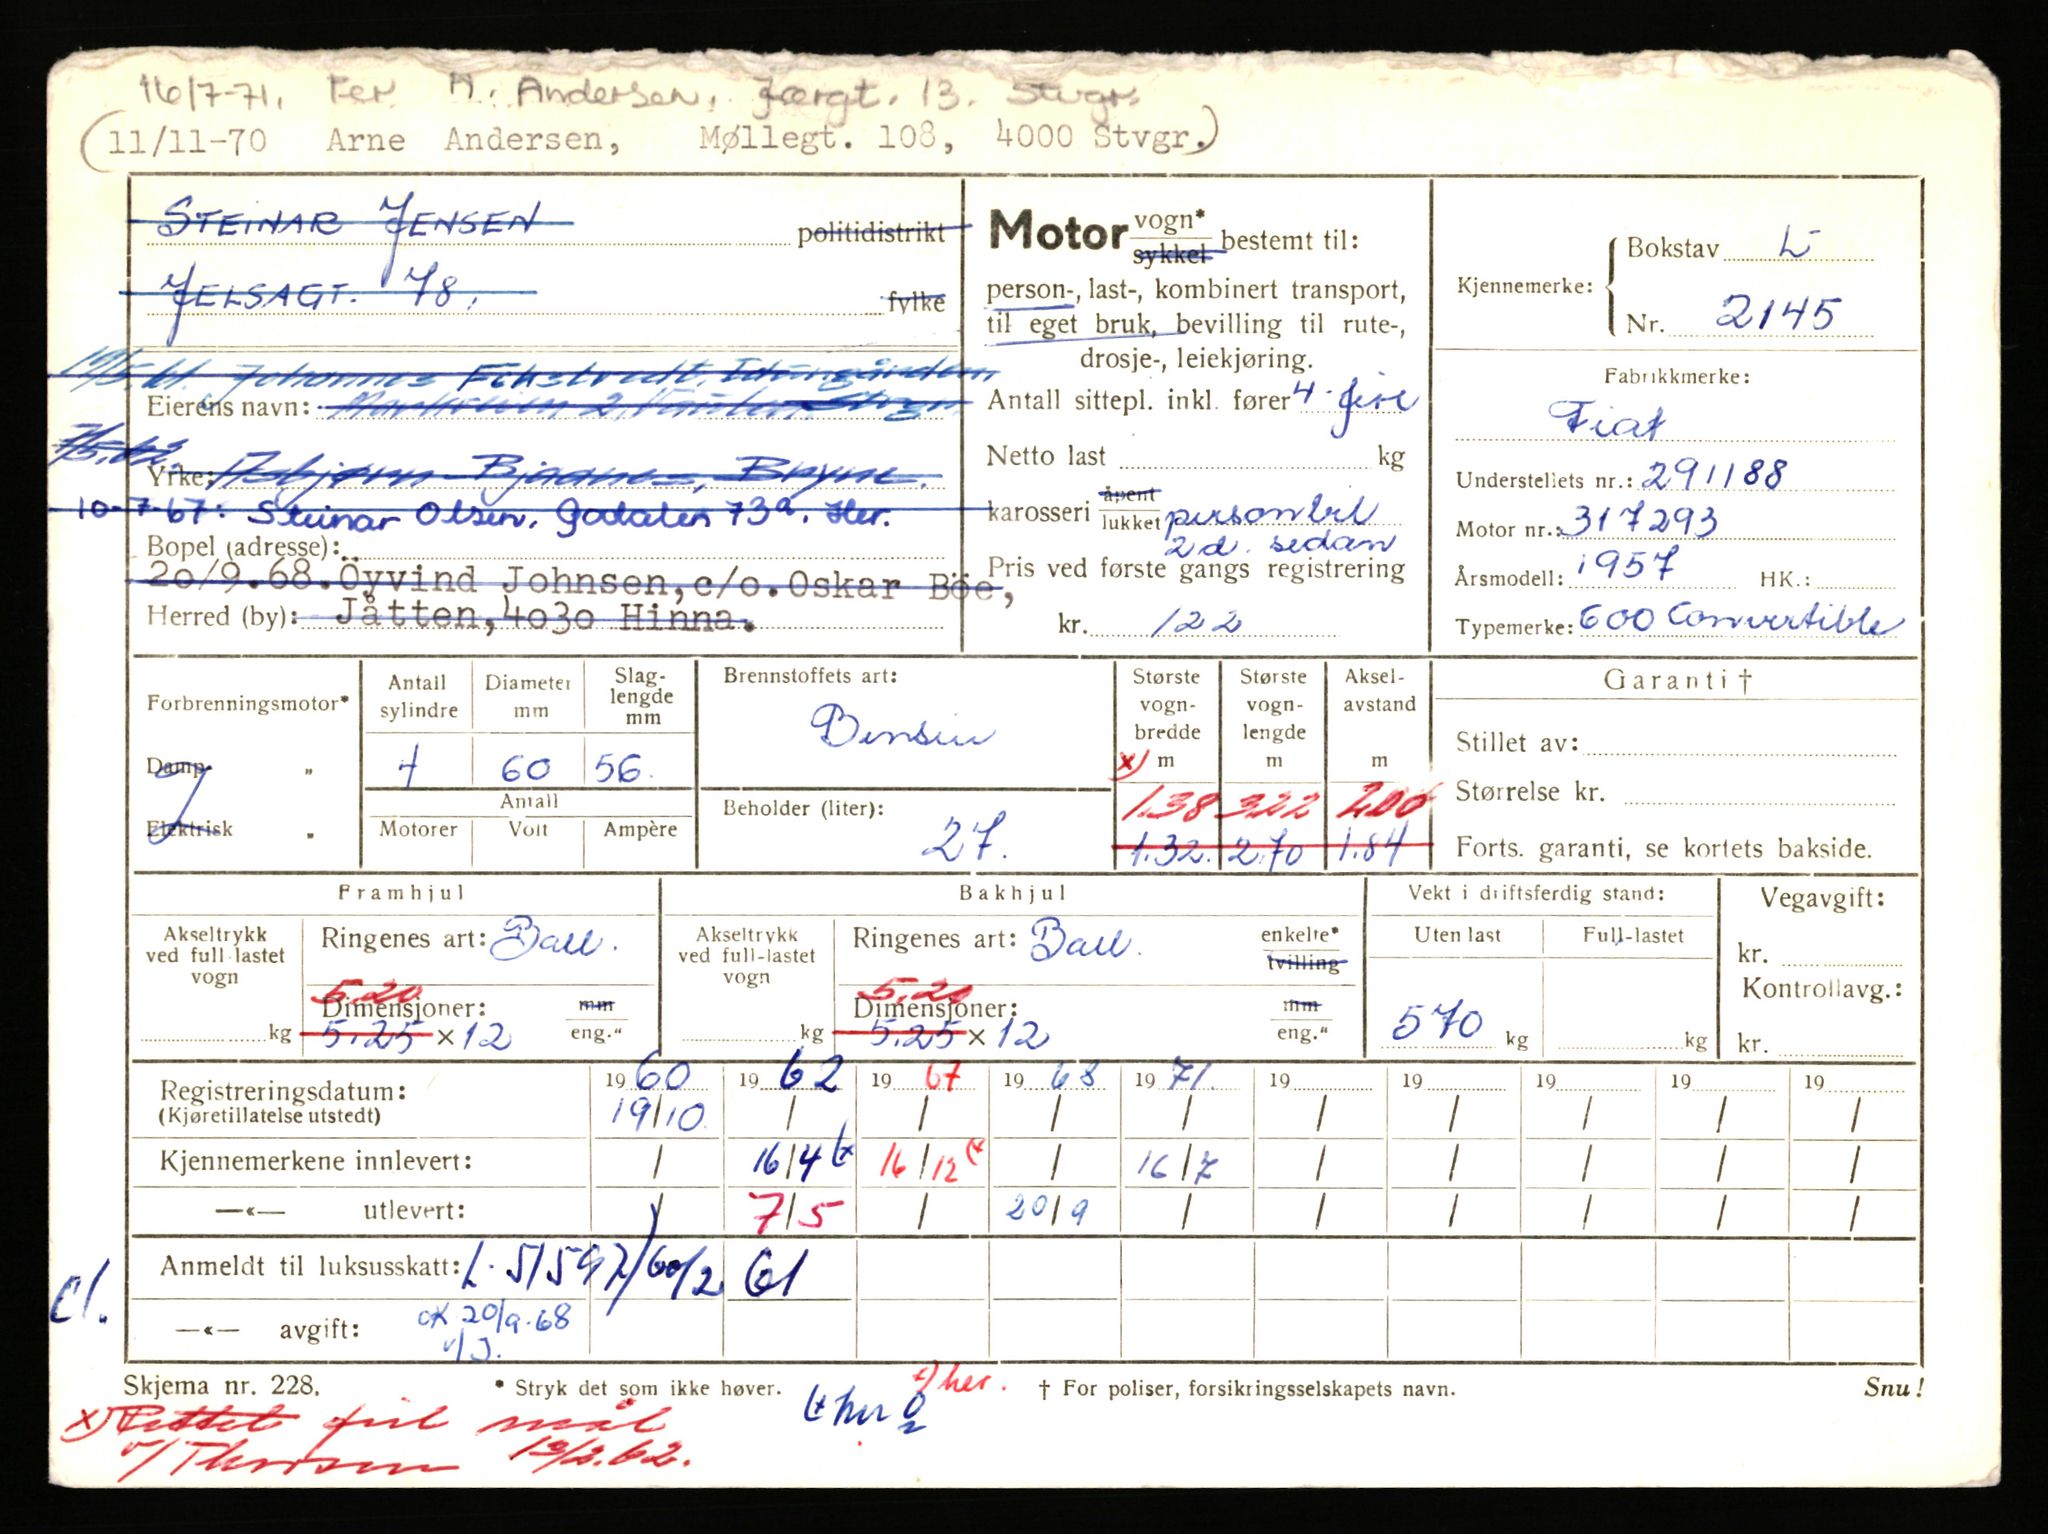 16/7-71. Per A. Andersen, Jærgt. 13. Stvgr.
(11/11-70 Arne Andersen, Møllegt. 108, 4000 Stvgr.)
STEINAR JENSEN politidistrikt
JELSAGT. 78. fylke
19/5.61. Johannes
Eierens navn:
7/5.62. Yrke: Asbjørn Bjaanes, Bryne.
10-7-67: Steinar Olsen, Godalen 73a, Her.
Bopel (adresse):
20/9.68. Öyvind Johnsen, c/o. Oskar Böe,
Herred (by): Jåtten, 4030 Hinna.
Motor vogn* sykkel bestemt til:
person-, last-, kombinert transport,
til eget bruk, bevilling til rute-,
drosje-, leiekjøring.
Antall sittepl. inkl. fører 4 - fire
Netto last kg
karosseri åpent lukket personbil
2 d. sedan
Pris ved første gangs registrering
kr. 122
Kjennemerke: Bokstav L
Nr. 2145
Fabrikkmerke:
Fiat
Understellets nr.: 291188
Motor nr.: 317293
Årsmodell: 1957 HK.:
Typemerke: 600 Convertible
Forbrenningsmotor*
Damp- „
Elektrisk „
Antall sylindre 4
Diameter mm 60
Slag-lengde mm 56.
Antall
Motorer Volt Ampère
Brennstoffets art:
Bensin
Beholder (liter):
27.
Største vogn-bredde x) m 1.38 1.32.
Største vogn-lengde m 3.22 2.70
Aksel-avstand m 2.00 1.84
Garanti †
Stillet av:
Størrelse kr.
Forts. garanti, se kortets bakside.
Framhjul
Akseltrykk ved full-lastet vogn kg
Ringenes art: Ball.
5.20
Dimensjoner: mm
5.25 x 12 eng."
Bakhjul
Akseltrykk ved full-lastet vogn kg
Ringenes art: Ball. enkelte* tvilling
5.20
Dimensjoner: mm
5.25 x 12 eng."
Vekt i driftsferdig stand:
Uten last Full-lastet
570 kg kg
Vegavgift:
kr.
Kontrollavg.:
kr.
Registreringsdatum: 1960 1962 1967 1968 1971. 19 19 19 19 19
(Kjøretillatelse utstedt) 19/10. / / / / / / / / /
Kjennemerkene innlevert: / 16/4 (x 16/12 (x / 16/7 / / / / /
—«— utlevert: / 7/5 / 20/9 / / / / / /
Anmeldt til luksusskatt: L. 51597/60/2 61
—«— avgift: OK 20/9.68
v/J.
cl.
Skjema nr. 228. * Stryk det som ikke høver. † For poliser, forsikringsselskapets navn. Snu!
(x her her.
x) Rettet feil mål
v/ 13/2.62.